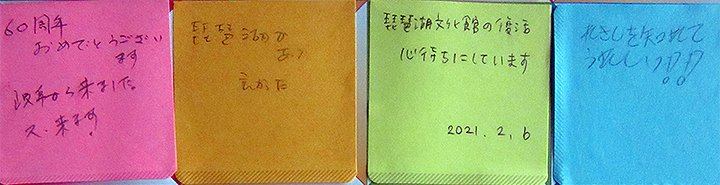 60周年
おめでとうござい
ます
岐阜から来ました。
又、来ます!
琵琶湖が
あって
よかった
琵琶湖文化館の復活
心待ちにしています
2021.2,6
れきしを知れて
うれしいです!!